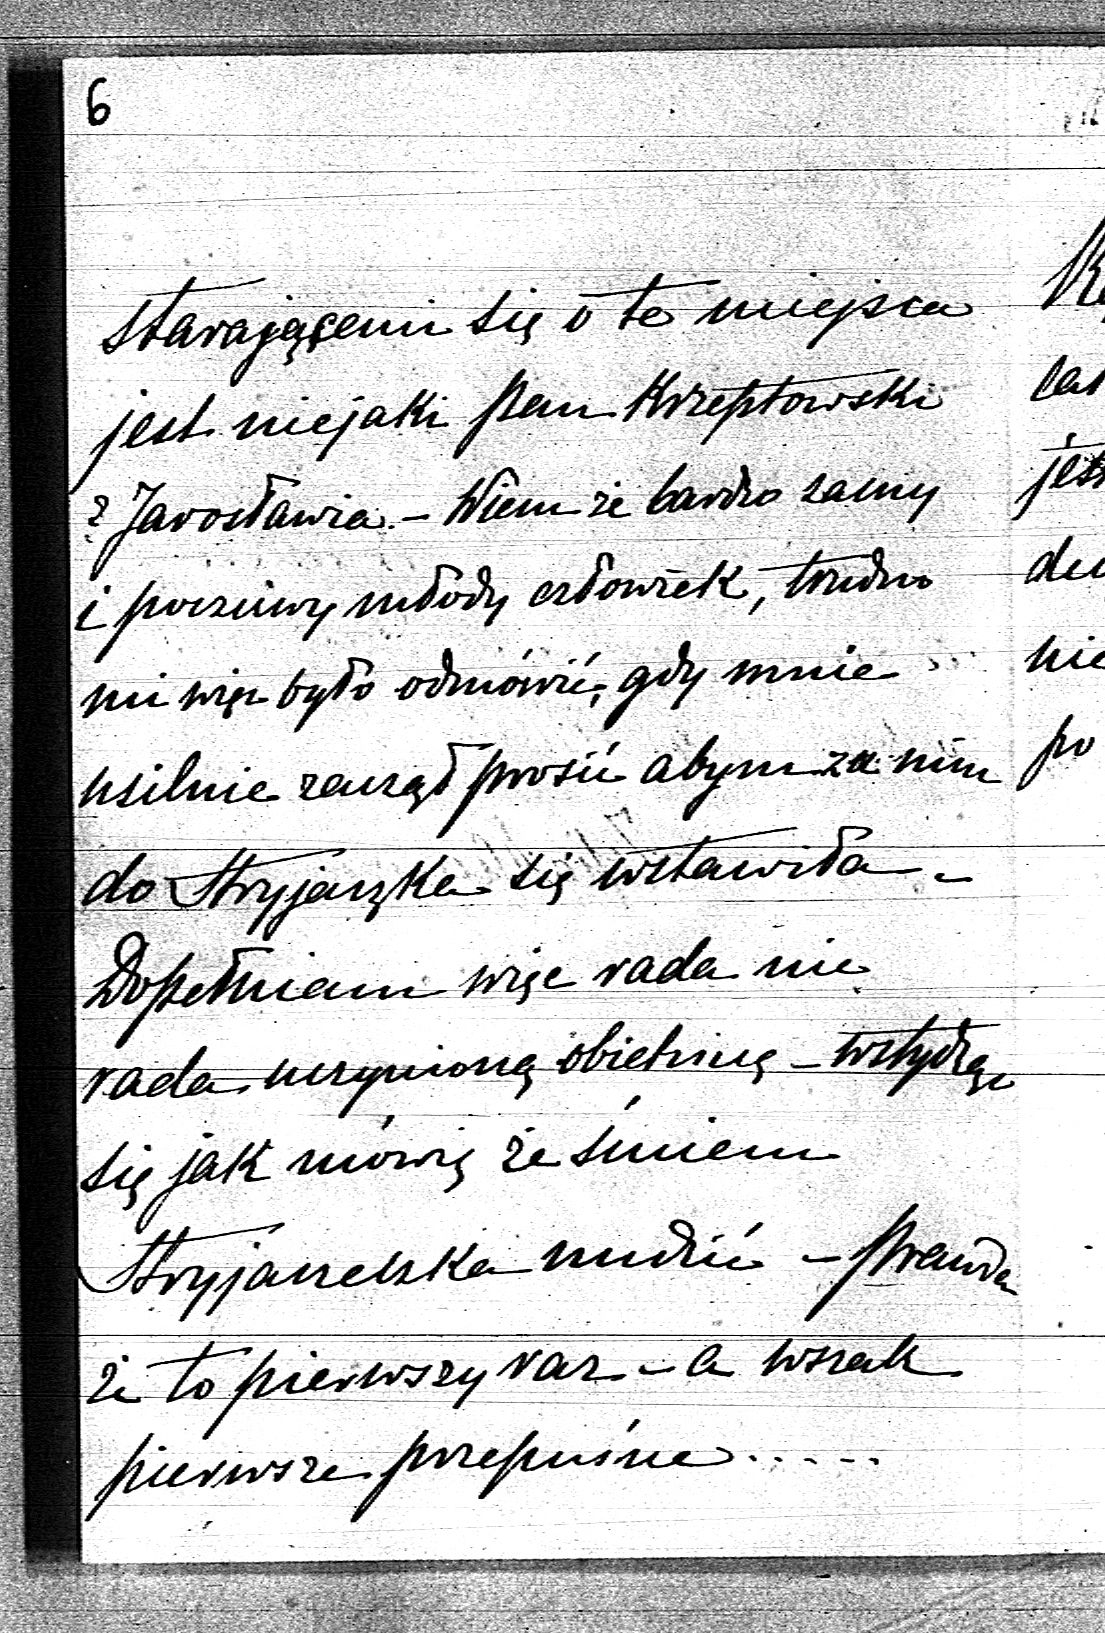 6
starającemi się o te miejsca
jest niejaki pan Krzeptowski
z Jarosławia. – Wiem że bardzo zacny
i poczciwy młody człowiek, trudno
mi więc było odmówić, gdy mnie
usilnie zaczął prosić abym za nim
do Stryjaszka się wstawiła –
Dopełniam więc rada nie
rada uczynioną obietnicę – wstydząc
się jak mówię że śmiem
Stryjaszka nudzić – prawda
że to pierwszy raz – a wszak
pierwsze przepuśne.....